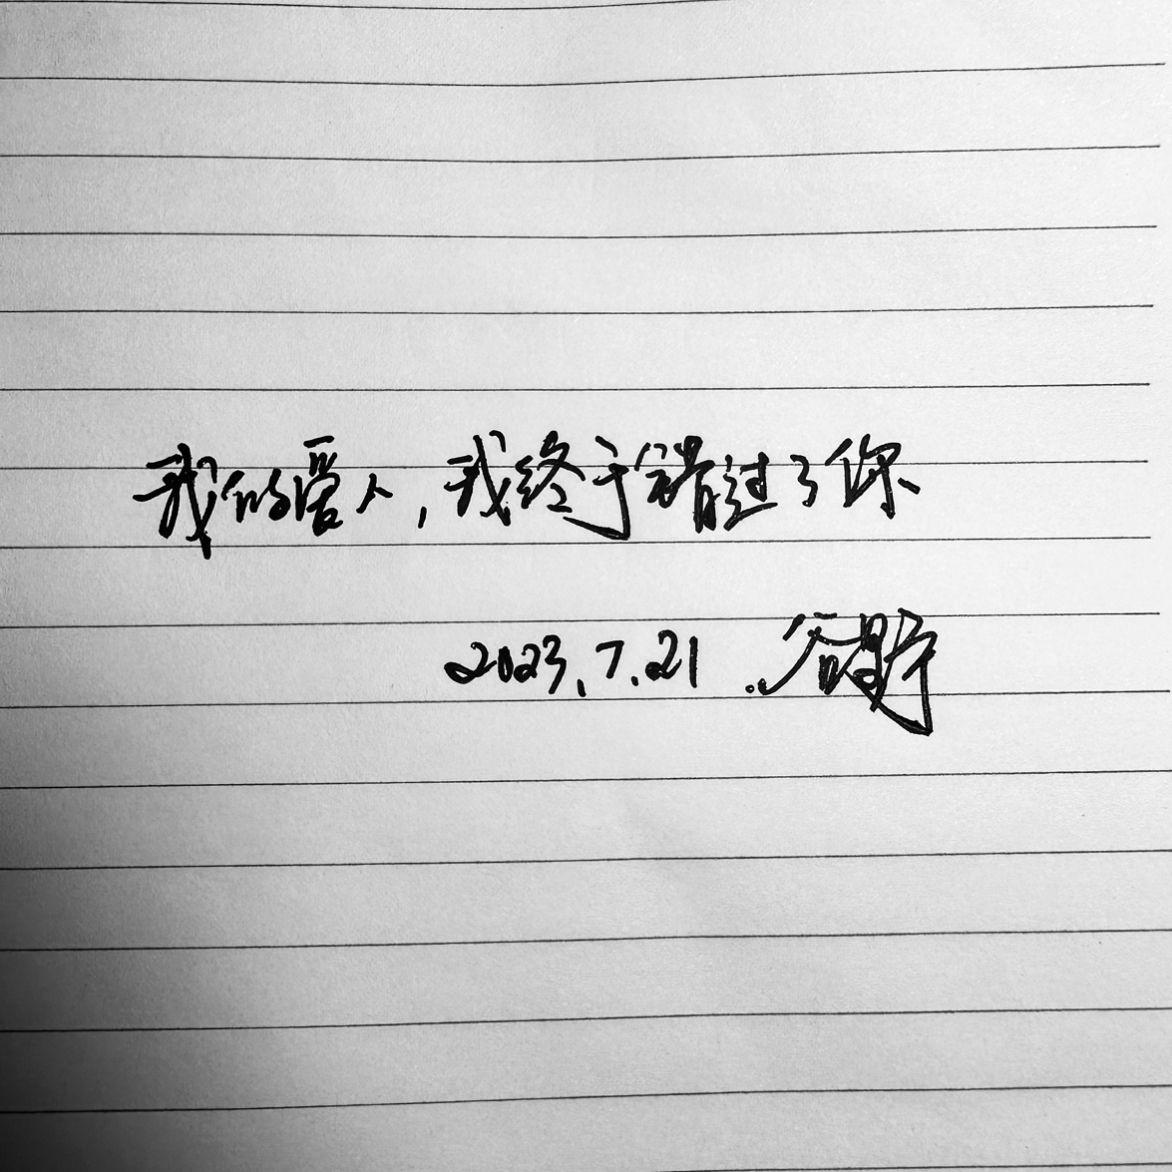 我的爱人,我终于错过了你
2023.7.21.谷野